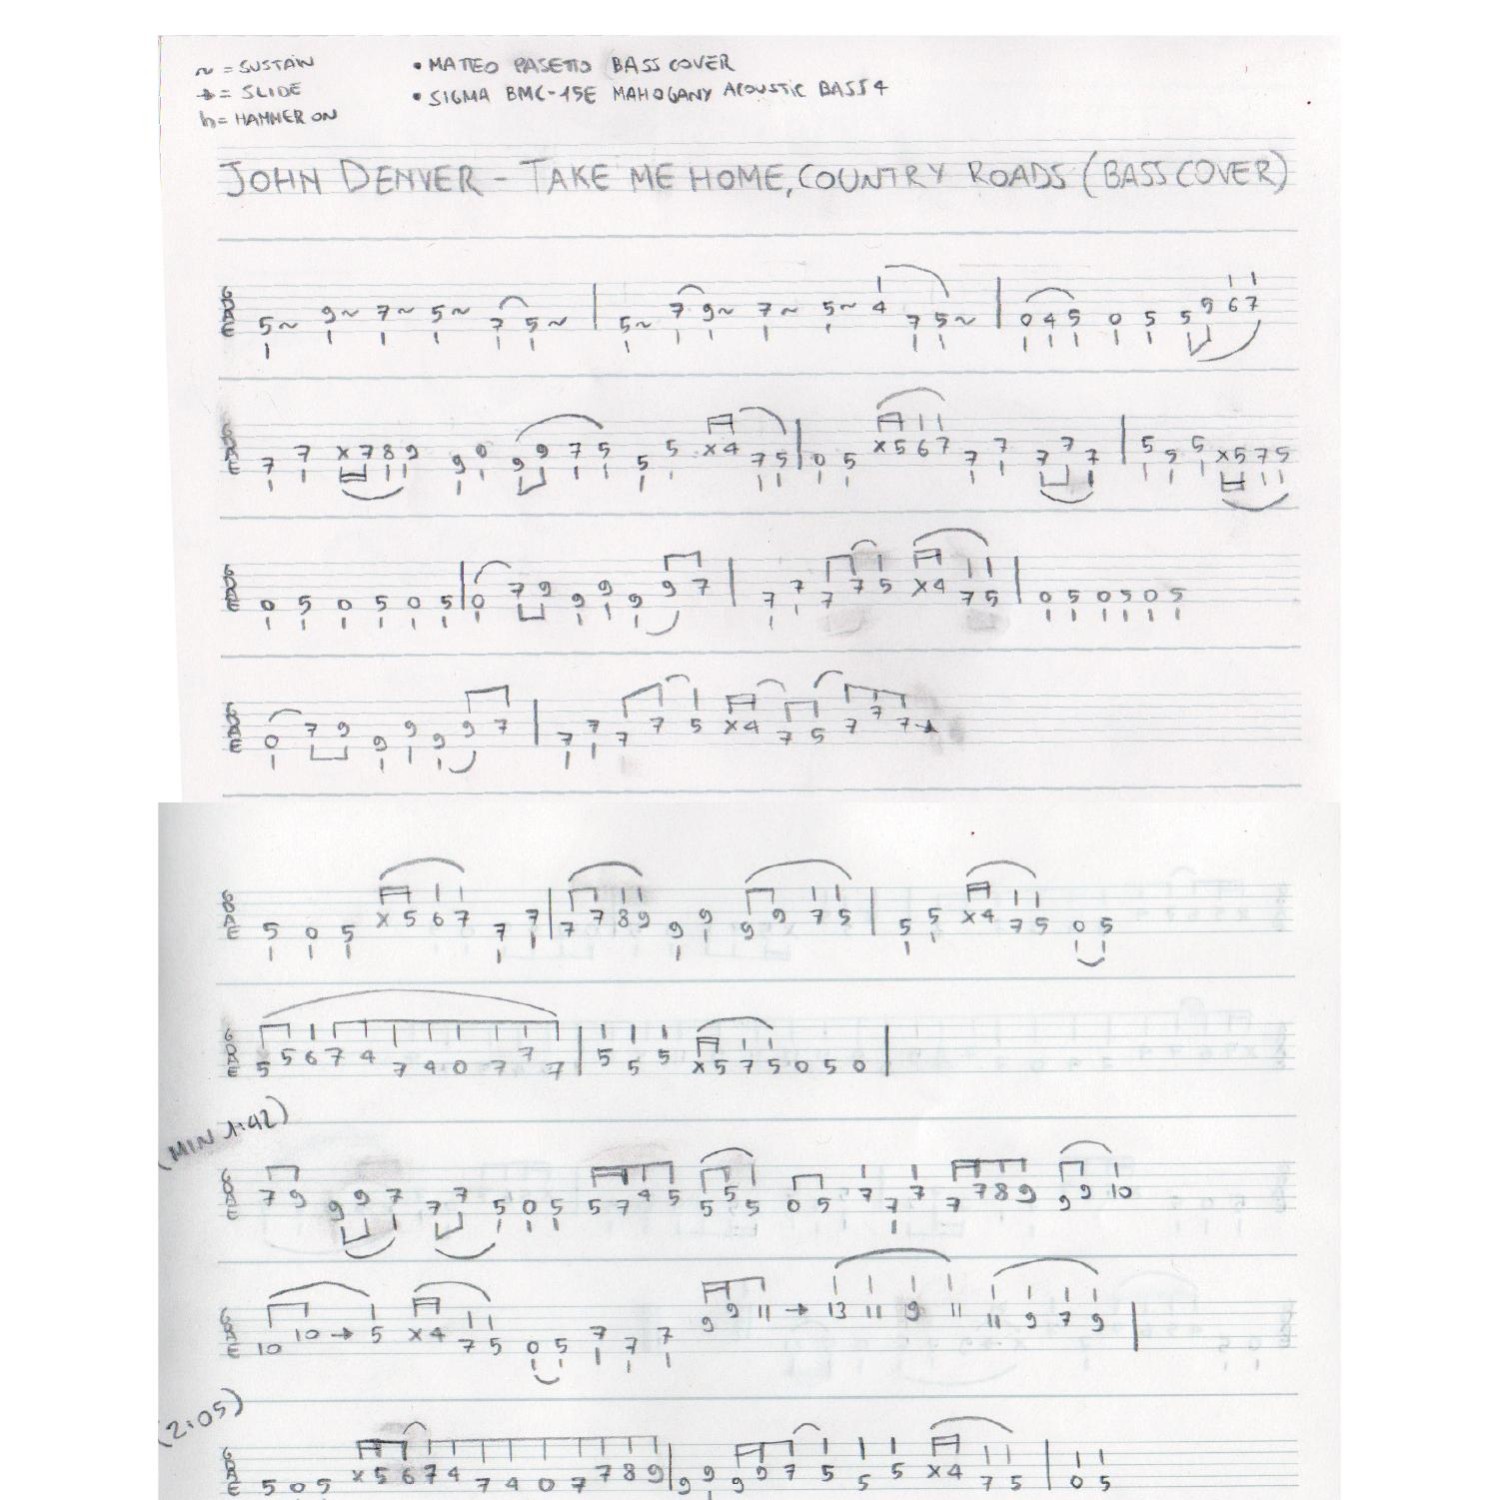 ~ = SUSTAIN
→ = SLIDE
h = HAMMER ON
• MATTEO PASETTO BASS COVER
• SIGMA BMC-15E MAHOGANY ACOUSTIC BASS 4
JOHN DENVER - TAKE ME HOME, COUNTRY ROADS (BASS COVER)
G D A E 5~ 9~ 7~ 5~ 7 5~ | 5~ 7 9~ 7~ 5~ 4 7 5~ | 0 4 5 0 5 5 9 6 7
G D A E 7 7 x 7 8 9 9 0 9 9 7 5 5 5 x 4 7 5 | 0 5 x 5 6 7 7 7 7 7 7 | 5 5 5 x 5 7 5
G D A E 0 5 0 5 0 5 | 0 7 9 9 9 9 9 7 | 7 7 7 7 5 x 4 7 5 | 0 5 0 5 0 5
G D A E 0 7 9 9 9 9 9 7 | 7 7 7 7 5 x 4 7 5 7 7 7→
G D A E 5 0 5 x 5 6 7 7 7 | 7 7 8 9 9 9 9 9 7 5 | 5 5 x 4 7 5 0 5
G D A E 5 5 6 7 4 7 4 0 7 7 7 | 5 5 5 x 5 7 5 0 5 0 |
(MIN 1:42)
G D A E 7 9 9 9 7 7 7 5 0 5 5 7 4 5 5 5 5 0 5 7 7 7 7 7 8 9 9 9 10
G D A E 10 10 → 5 x 4 7 5 0 5 7 7 7 9 9 11 → 13 11 9 11 11 9 7 9 |
(2:05)
G D A E 5 0 5 x 5 6 7 4 7 4 0 7 7 8 9 | 9 9 9 9 7 5 5 5 x 4 7 5 | 0 5